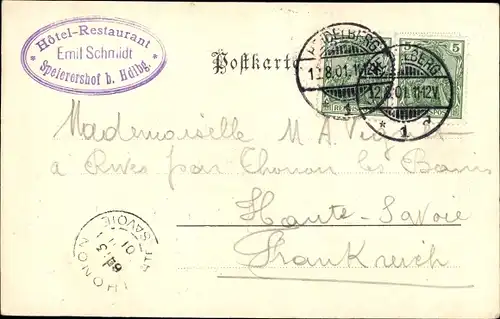 Hôtel-Restaurant
Emil Schmidt
Speierershof b. Hdlbg.
Postkarte
HEIDELBERG
12.8.01.11-12V.
* 1
5
HEIDELBERG
12.8.01.11-12V.
* 1 a
Mademoiselle M A
à Rives par Thonon les Bains
Haute-Savoie
Frankreich
THONON
01
SAVOIE